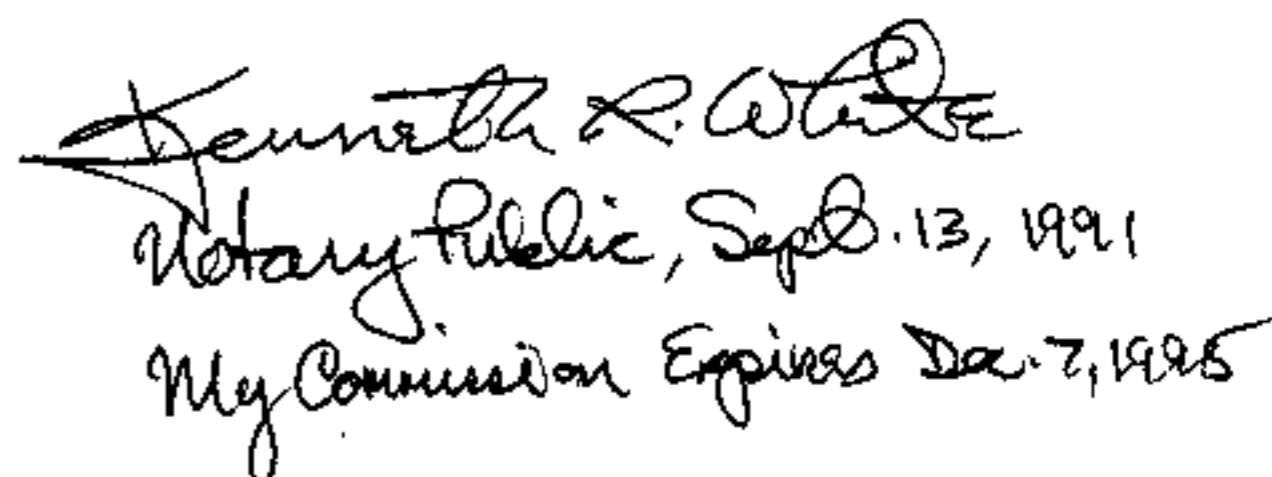 Kenneth R. White
Notary Public, Sept. 13, 1991
My Commission Expires Dec. 7, 1995